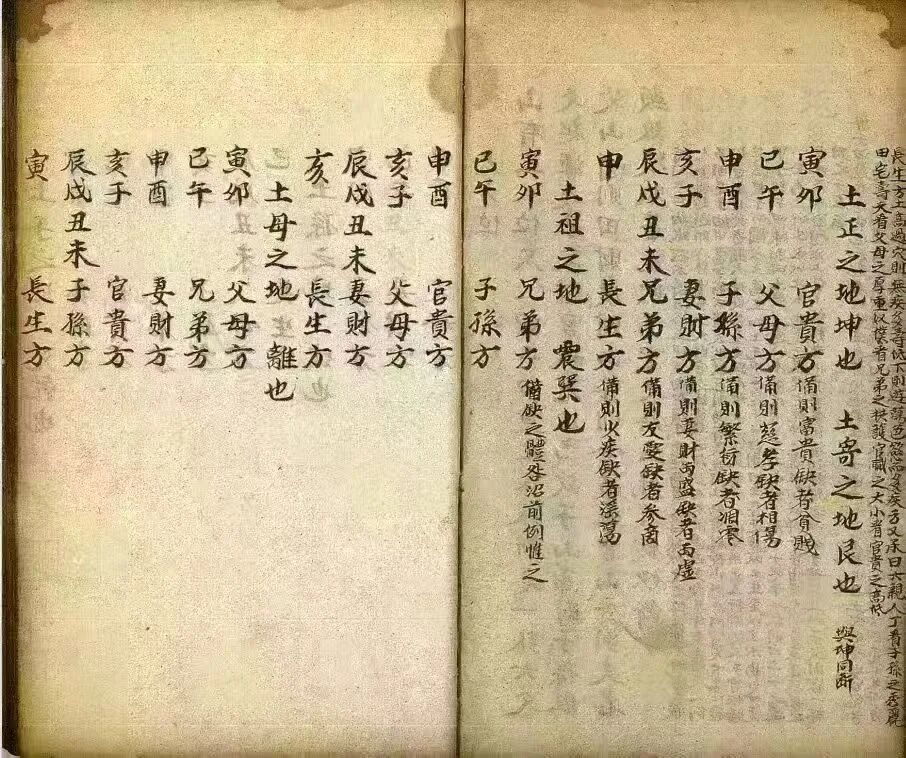 長生方土高過穴則無疾多壽低下則遊蕩色慾而多疾方又承曰六親人丁看子孫之秀麗
田宅壽夭看父母之厚重伩俫看兄弟之拱護官職之大小看官貴之高低
土正之地坤也　土寄之地艮也　與坤同斷
寅卯　官貴方　俻則富貴缺者貧賤
巳午　父母方　俻則慈孝缺者相傷
申酉　子孫方　俻則繁衍缺者凋零
亥子　妻財方　俻則妻財两盛缺者两虛
辰戌丑未　兄弟方　俻則友愛缺者參商
申　長生方　俻則少疾缺者淫蕩
土祖之地　震巽也
寅卯　兄弟方　俻缺之體咎沿前例惟之
巳午　子孫方
申酉　官貴方
亥子　父母方
辰戌丑未　妻財方
亥　長生方
土母之地　離也
寅卯　父母方
巳午　兄弟方
申酉　妻財方
亥子　官貴方
辰戌丑未　子孫方
寅　長生方